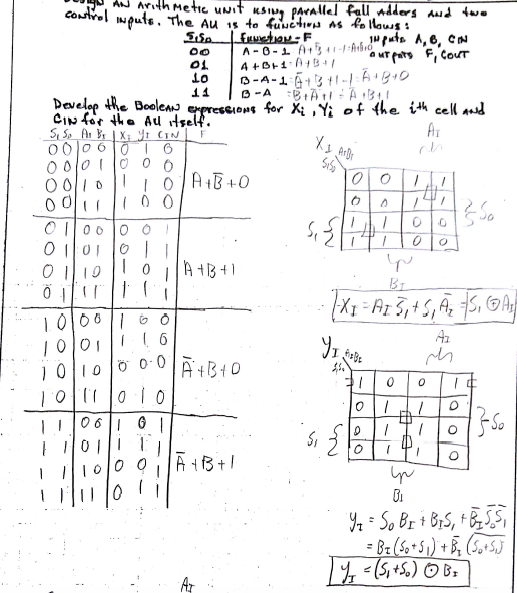 Design AN Arithmetic unit using parallel full Adders And two
control inputs. The AU is to function As follows:
S₁S₀ function - F inputs A, B, CIN
00 A-B-1 outputs F, COUT
01 A+B+1 : A+B+1
10 B-A-1 : Ā+B+1-1 : Ā+B+0
11 B-A = B+Ā+1 = Ā+B+1
Develop the Boolean expressions for Xi, Yi of the ith cell And
CIN for the AU itself.
S₁ S₀ AI BI XI YI CIN F
0 0 0 0 0 1 0
0 0 0 1 0 0 0
0 0 1 0 1 1 0 A+B̄+0
0 0 1 1 1 0 0
0 1 0 0 0 0 1
0 1 0 1 0 1 1
0 1 1 0 1 0 1 A+B+1
0 1 1 1 1 1 1
1 0 0 0 1 0 0
1 0 0 1 1 1 0
1 0 1 0 0 0 0 Ā+B+0
1 0 1 1 0 1 0
1 1 0 0 1 0 1
1 1 0 1 1 1 1 Ā+B+1
1 1 1 0 0 0 1
1 1 1 1 0 1 1
XI AIBI AI
S₁S₀
0 0 1 1
0 0 1 1 S₀
S₁ 1 1 0 0
1 1 0 0
BI
XI = AI S̄₁ + S₁ ĀI = S₁ ⊙ AI
YI AIBI AI
S₁S₀
1 0 0 1
0 1 1 0 S₀
S₁ 0 1 1 0
0 1 1 0
BI
YI = S₀ BI + BI S₁ + B̄I S̄₀ S̄₁
= BI (S₀+S₁) + B̄I (S₀+S₁)
YI = (S₁+S₀) ⊙ BI
AI